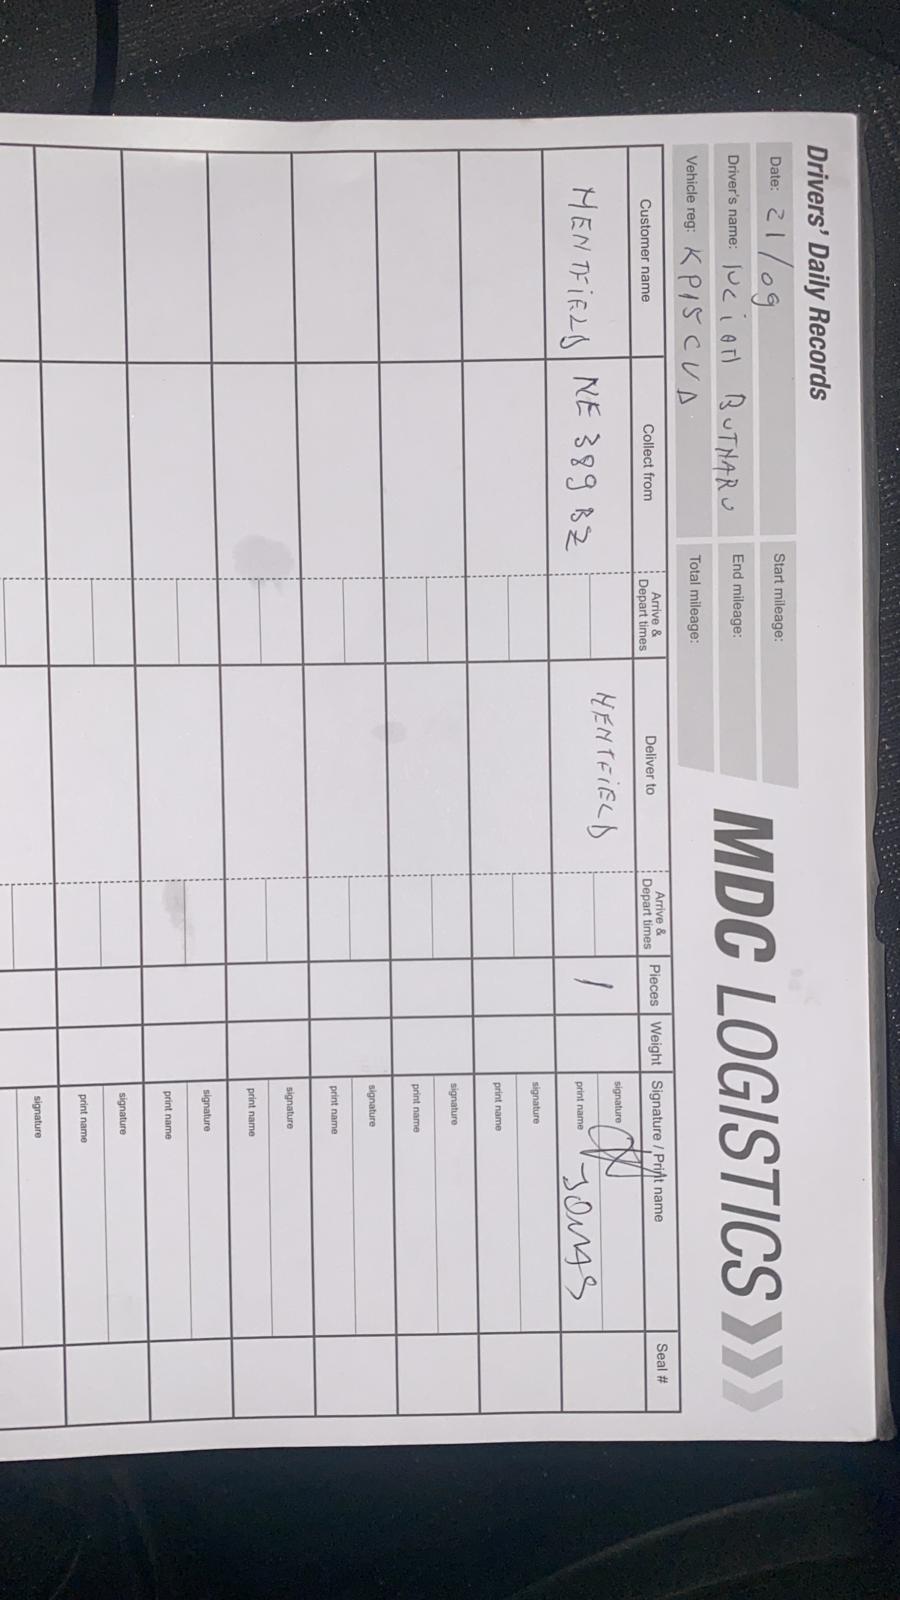 Drivers' Daily Records
MDC LOGISTICS
Date: 21/09
Start mileage:
Driver's name: LUCIAN BUTNARU
End mileage:
Vehicle reg: KP15CVA
Total mileage:
Customer name Collect from Arrive & Depart times Deliver to Arrive & Depart times Pieces Weight Signature / Print name Seal #
HENTFIELD NE389BZ HENTFIELD 1
signature
print name
signature
print name
signature
print name
signature
print name
signature
print name
signature
print name
signature
print name
signature